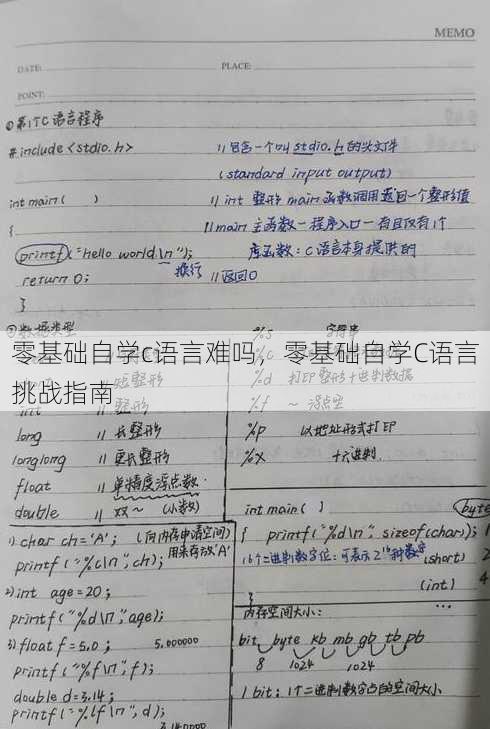 MEMO
DATE: PLACE:
POINT:
①第1个C语言程序
#include <stdio.h> //包含一个叫stdio.h的头文件
(standard input output)
int main( ) //int 整形 main函数调用返回一个整形值
{ //main主函数一程序入口一有且仅有1个
printf("hello world\n"); 库函数:C语言本身提供的
换行
return 0; //返回0
}
②数据类型
零基础自学c语言难吗,零基础自学C语言
挑战指南
%s 字符串
%d 打印整形十进制数据
int //整形
%f ~ 浮点型
long //长整形
%p 以地址形式打印
longlong //更长整形
%x 十六进制.
float //单精度浮点数.
double //双~ (小数)
1) char ch='A'; (向内存申请空间)
用来存放'A'
printf("%c\n",ch);
2) int age=20;
printf("%d\n",age);
3) float f=5.0; 5.000000
printf("%f\n",f);
double d=3.14;
printf("%lf\n",d);
3.140000
int main( ) byte
{ printf("%d\n", sizeof(char)); 1
16个二进制数字位:可表示2^16种数字
(short) 2
(int) 4
}
内存空间大小:
bit byte kb mb gb tb pb
8 1024 1024
1 bit: 1个二进制数字占的空间大小